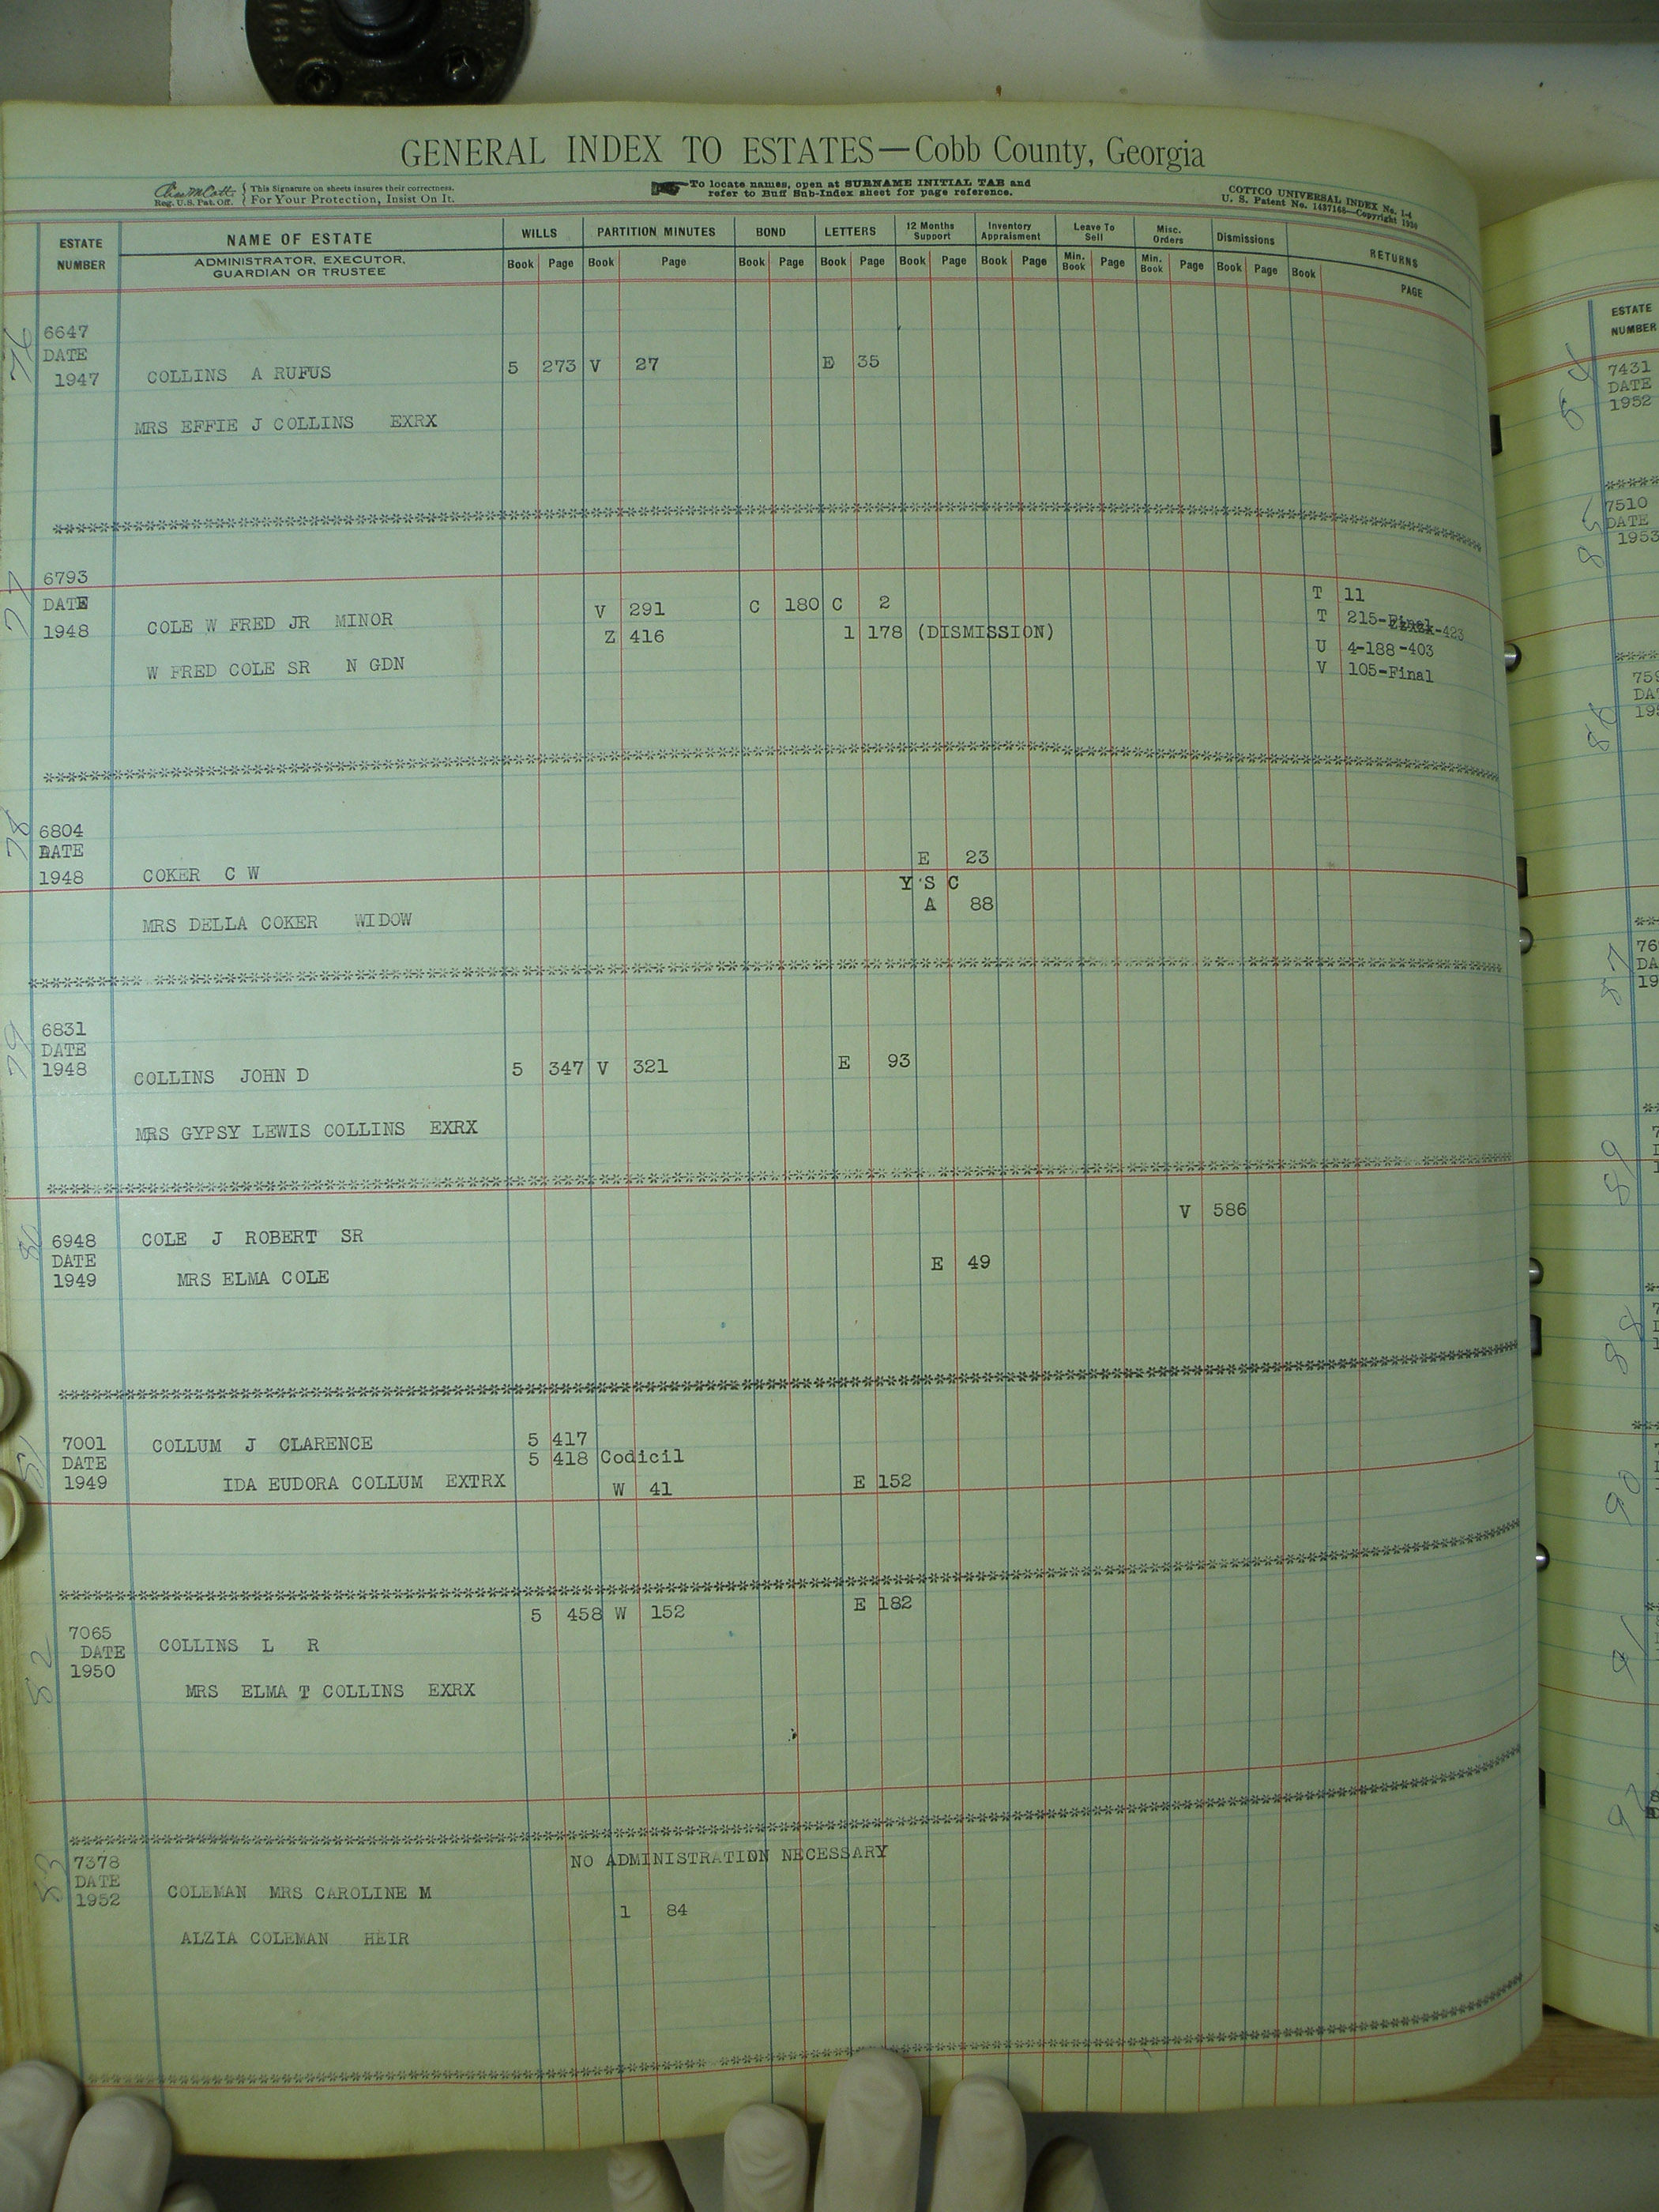 GENERAL INDEX TO ESTATES—Cobb County, Georgia
Reg. U.S. Pat. Off. This Signature on sheets insures their correctness.
For Your Protection, Insist On It.
To locate names, open at SURNAME INITIAL TAB and
refer to Buff Sub-Index sheet for page reference.
COTTCO UNIVERSAL INDEX No. 1-4
U. S. Patent No. 1437166—Copyright 1930
ESTATE NUMBER
NAME OF ESTATE
ADMINISTRATOR, EXECUTOR,
GUARDIAN OR TRUSTEE
WILLS PARTITION MINUTES BOND LETTERS 12 Months Support Inventory Appraisment Leave To Sell Misc. Orders Dismissions RETURNS
Book Page Book Page Book Page Book Page Book Page Book Page Min. Book Page Min. Book Page Book Page Book PAGE
76
6647
DATE
1947 COLLINS A RUFUS 5 273 V 27 E 35
MRS EFFIE J COLLINS EXRX
77
6793
DATE
1948 COLE W FRED JR MINOR V 291 C 180 C 2 T 11
Z 416 1 178 (DISMISSION) T 215-423
W FRED COLE SR N GDN U 4-188-403
V 105-Final
78
6804
DATE
1948 COKER C W E 23
Y S C
A 88
MRS DELLA COKER WIDOW
79
6831
DATE
1948 COLLINS JOHN D 5 347 V 321 E 93
MRS GYPSY LEWIS COLLINS EXRX
80
V 586
6948 COLE J ROBERT SR
DATE E 49
1949 MRS ELMA COLE
81
7001 COLLUM J CLARENCE 5 417
DATE 5 418 Codicil
1949 IDA EUDORA COLLUM EXTRX W 41 E 152
52
5 458 W 152 E 182
7065
DATE COLLINS L R
1950
MRS ELMA T COLLINS EXRX
53
7378 NO ADMINISTRATION NECESSARY
DATE
1952 COLEMAN MRS CAROLINE M
1 84
ALZIA COLEMAN HEIR
ESTATE
NUMBER
7431
DATE
1952
7510
DATE
1953
85
86
87
89
88
90
91